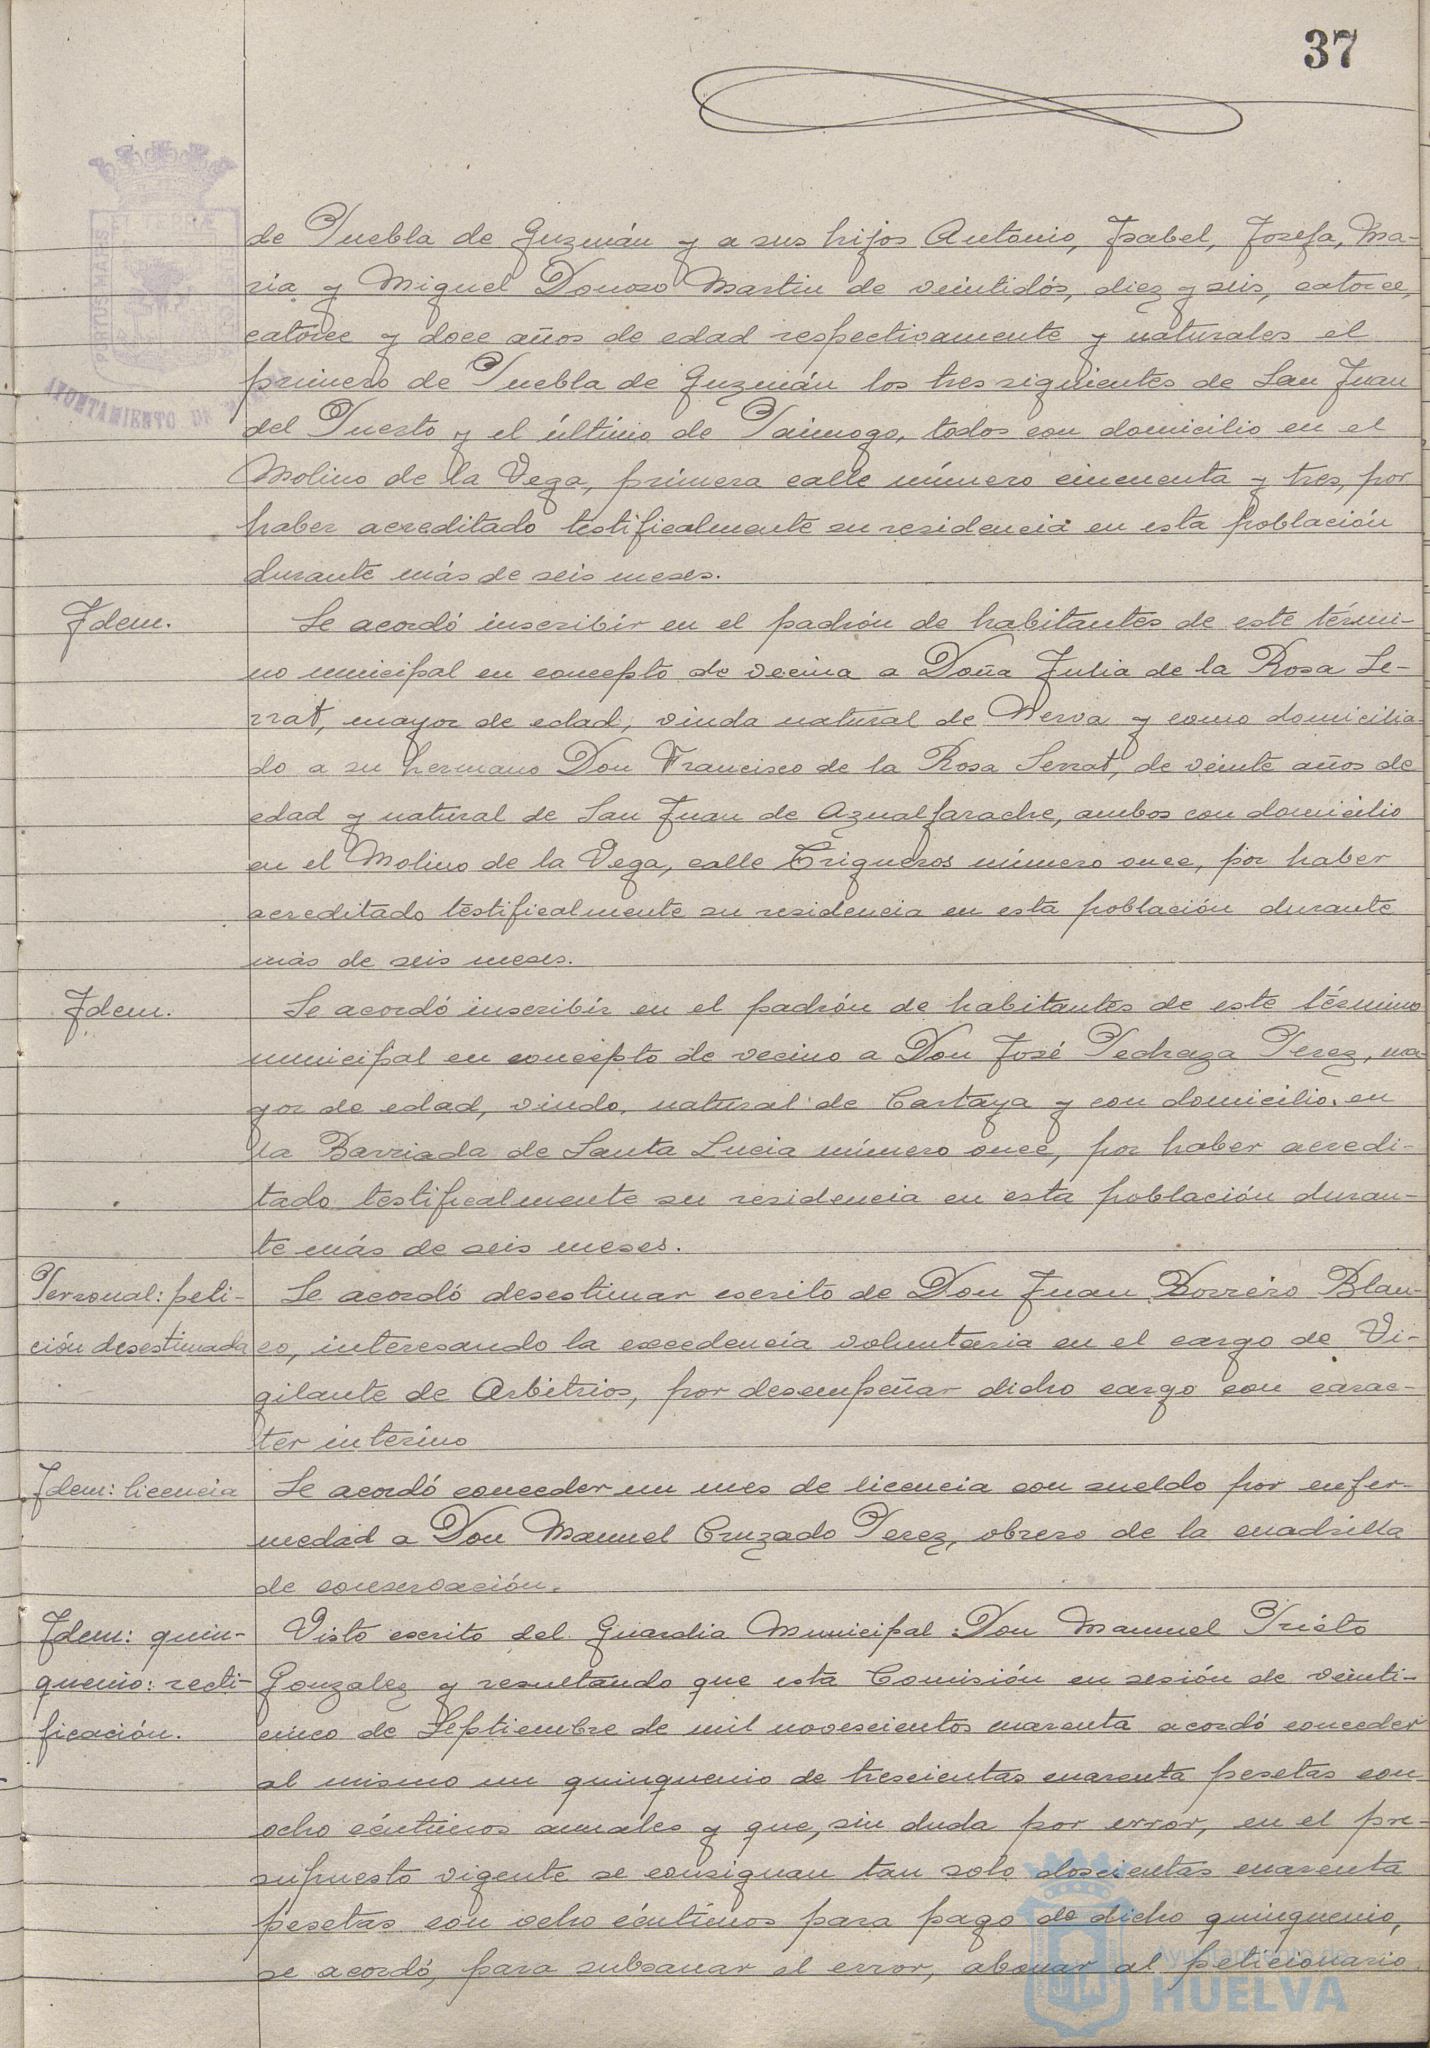 37
de Puebla de Guzmán y a sus hijos Antonio, Isabel, Josefa, Ma-
ria y Miguel Donoso Martin de veintidós, diez y seis, catorce,
catorce y doce años de edad respectivamente y naturales el
primero de Puebla de Guzmán los tres siguientes de San Juan
del Puerto y el último de Paimogo, todos con domicilio en el
Molino de la Vega, primera calle número cincuenta y tres, por
haber acreditado testificalmente su residencia en esta población
durante más de seis meses.
Idem.
Se acordó inscribir en el padrón de habitantes de este térmi-
no municipal en concepto de vecina a Doña Julia de la Rosa Se-
rrat, mayor de edad, viuda natural de Nerva y como domicilia-
do a su hermano Don Francisco de la Rosa Serrat, de veinte años de
edad y natural de San Juan de Aznalfarache, ambos con domicilio
en el Molino de la Vega, calle Trigueros número once, por haber
acreditado testificalmente su residencia en esta población durante
más de seis meses.
Idem.
Se acordó inscribir en el padrón de habitantes de este término
municipal en concepto de vecino a Don José Pedraza Perez, ma-
yor de edad, viudo, natural de Cartaya y con domicilio en
la Barriada de Santa Lucia número once, por haber acredi-
tado testificalmente su residencia en esta población duran-
te más de seis meses.
Personal: peti-
ción desestimada
Se acordó desestimar escrito de Don Juan Borrero Blan-
co, interesando la excedencia voluntaria en el cargo de Vi-
gilante de Arbitrios, por desempeñar dicho cargo con carac-
ter interino
Idem: licencia
Se acordó conceder un mes de licencia con sueldo por enfer-
medad a Don Manuel Cruzado Perez, obrero de la cuadrilla
de conservación.
Idem: quin-
quenio: recti-
ficación.
Visto escrito del Guardia Municipal Don Manuel Prieto
Gonzalez y resultando que esta Comisión en sesión de veinti-
cinco de Septiembre de mil novescientos cuarenta acordó conceder
al mismo un quinquenio de trescientas cuarenta pesetas con
ocho céntimos anuales y que, sin duda por error, en el pre-
supuesto vigente se consignan tan solo doscientas cuarenta
pesetas con ocho céntimos para pago de dicho quinquenio,
se acordó, para subsanar el error, abonar al peticionario
PORTUS MARIS
AYUNTAMIENTO DE
Ayuntamiento de
HUELVA